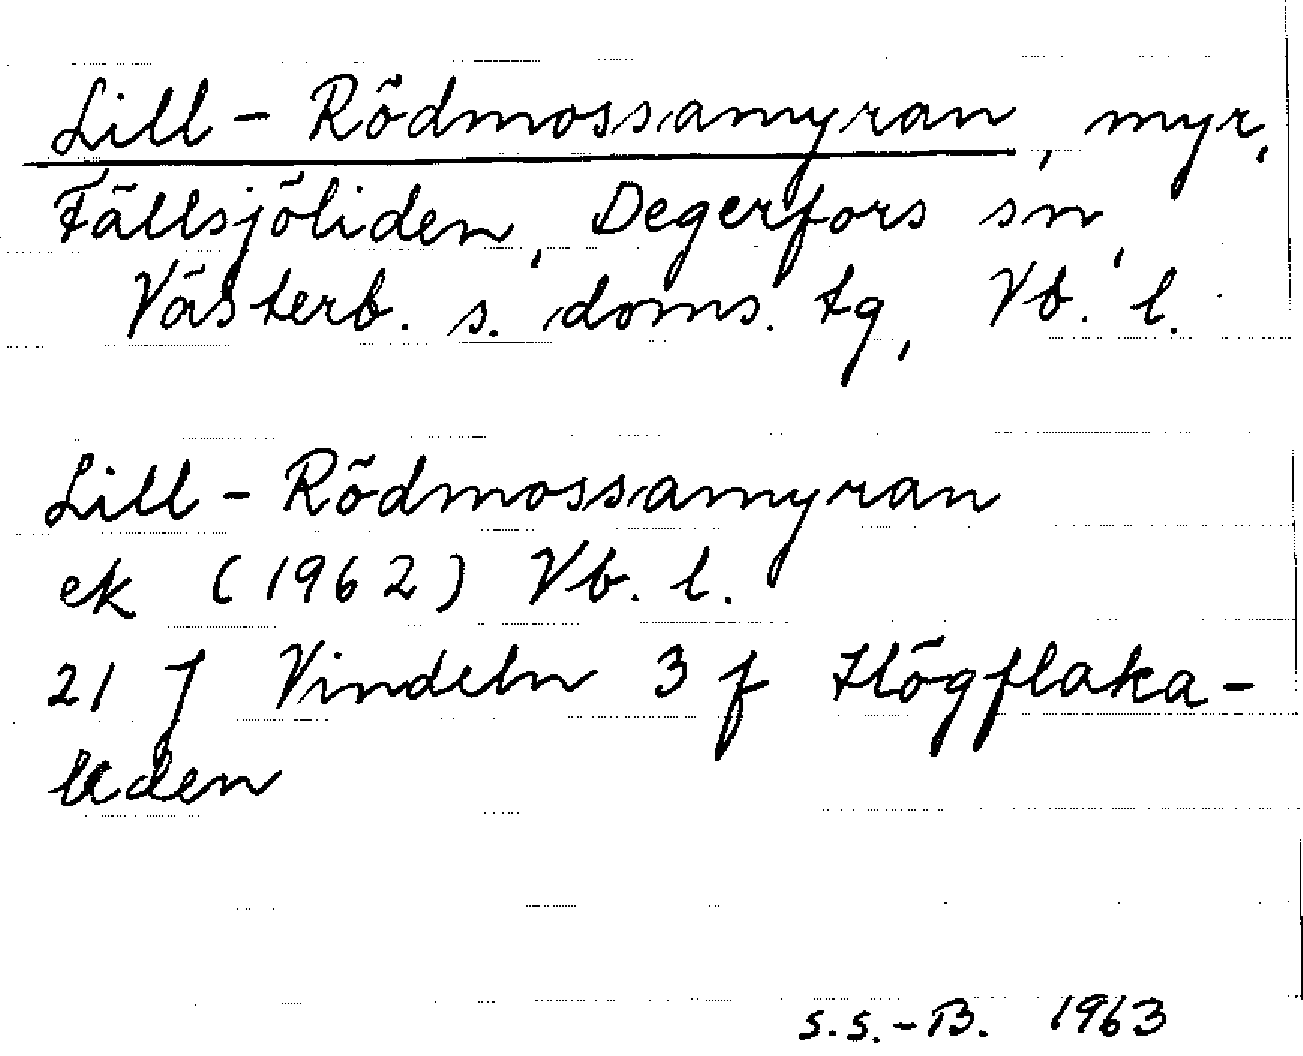 Lill-Rödmossamyran, myr,
Fällsjöliden, Degerfors sn,
Västerb. s. doms. tg, Vb. l.
Lill-Rödmossamyran
ek (1962) Vb. l.
21 J Vindeln 3 f Högflaka-
liden
S.S.-B. 1963